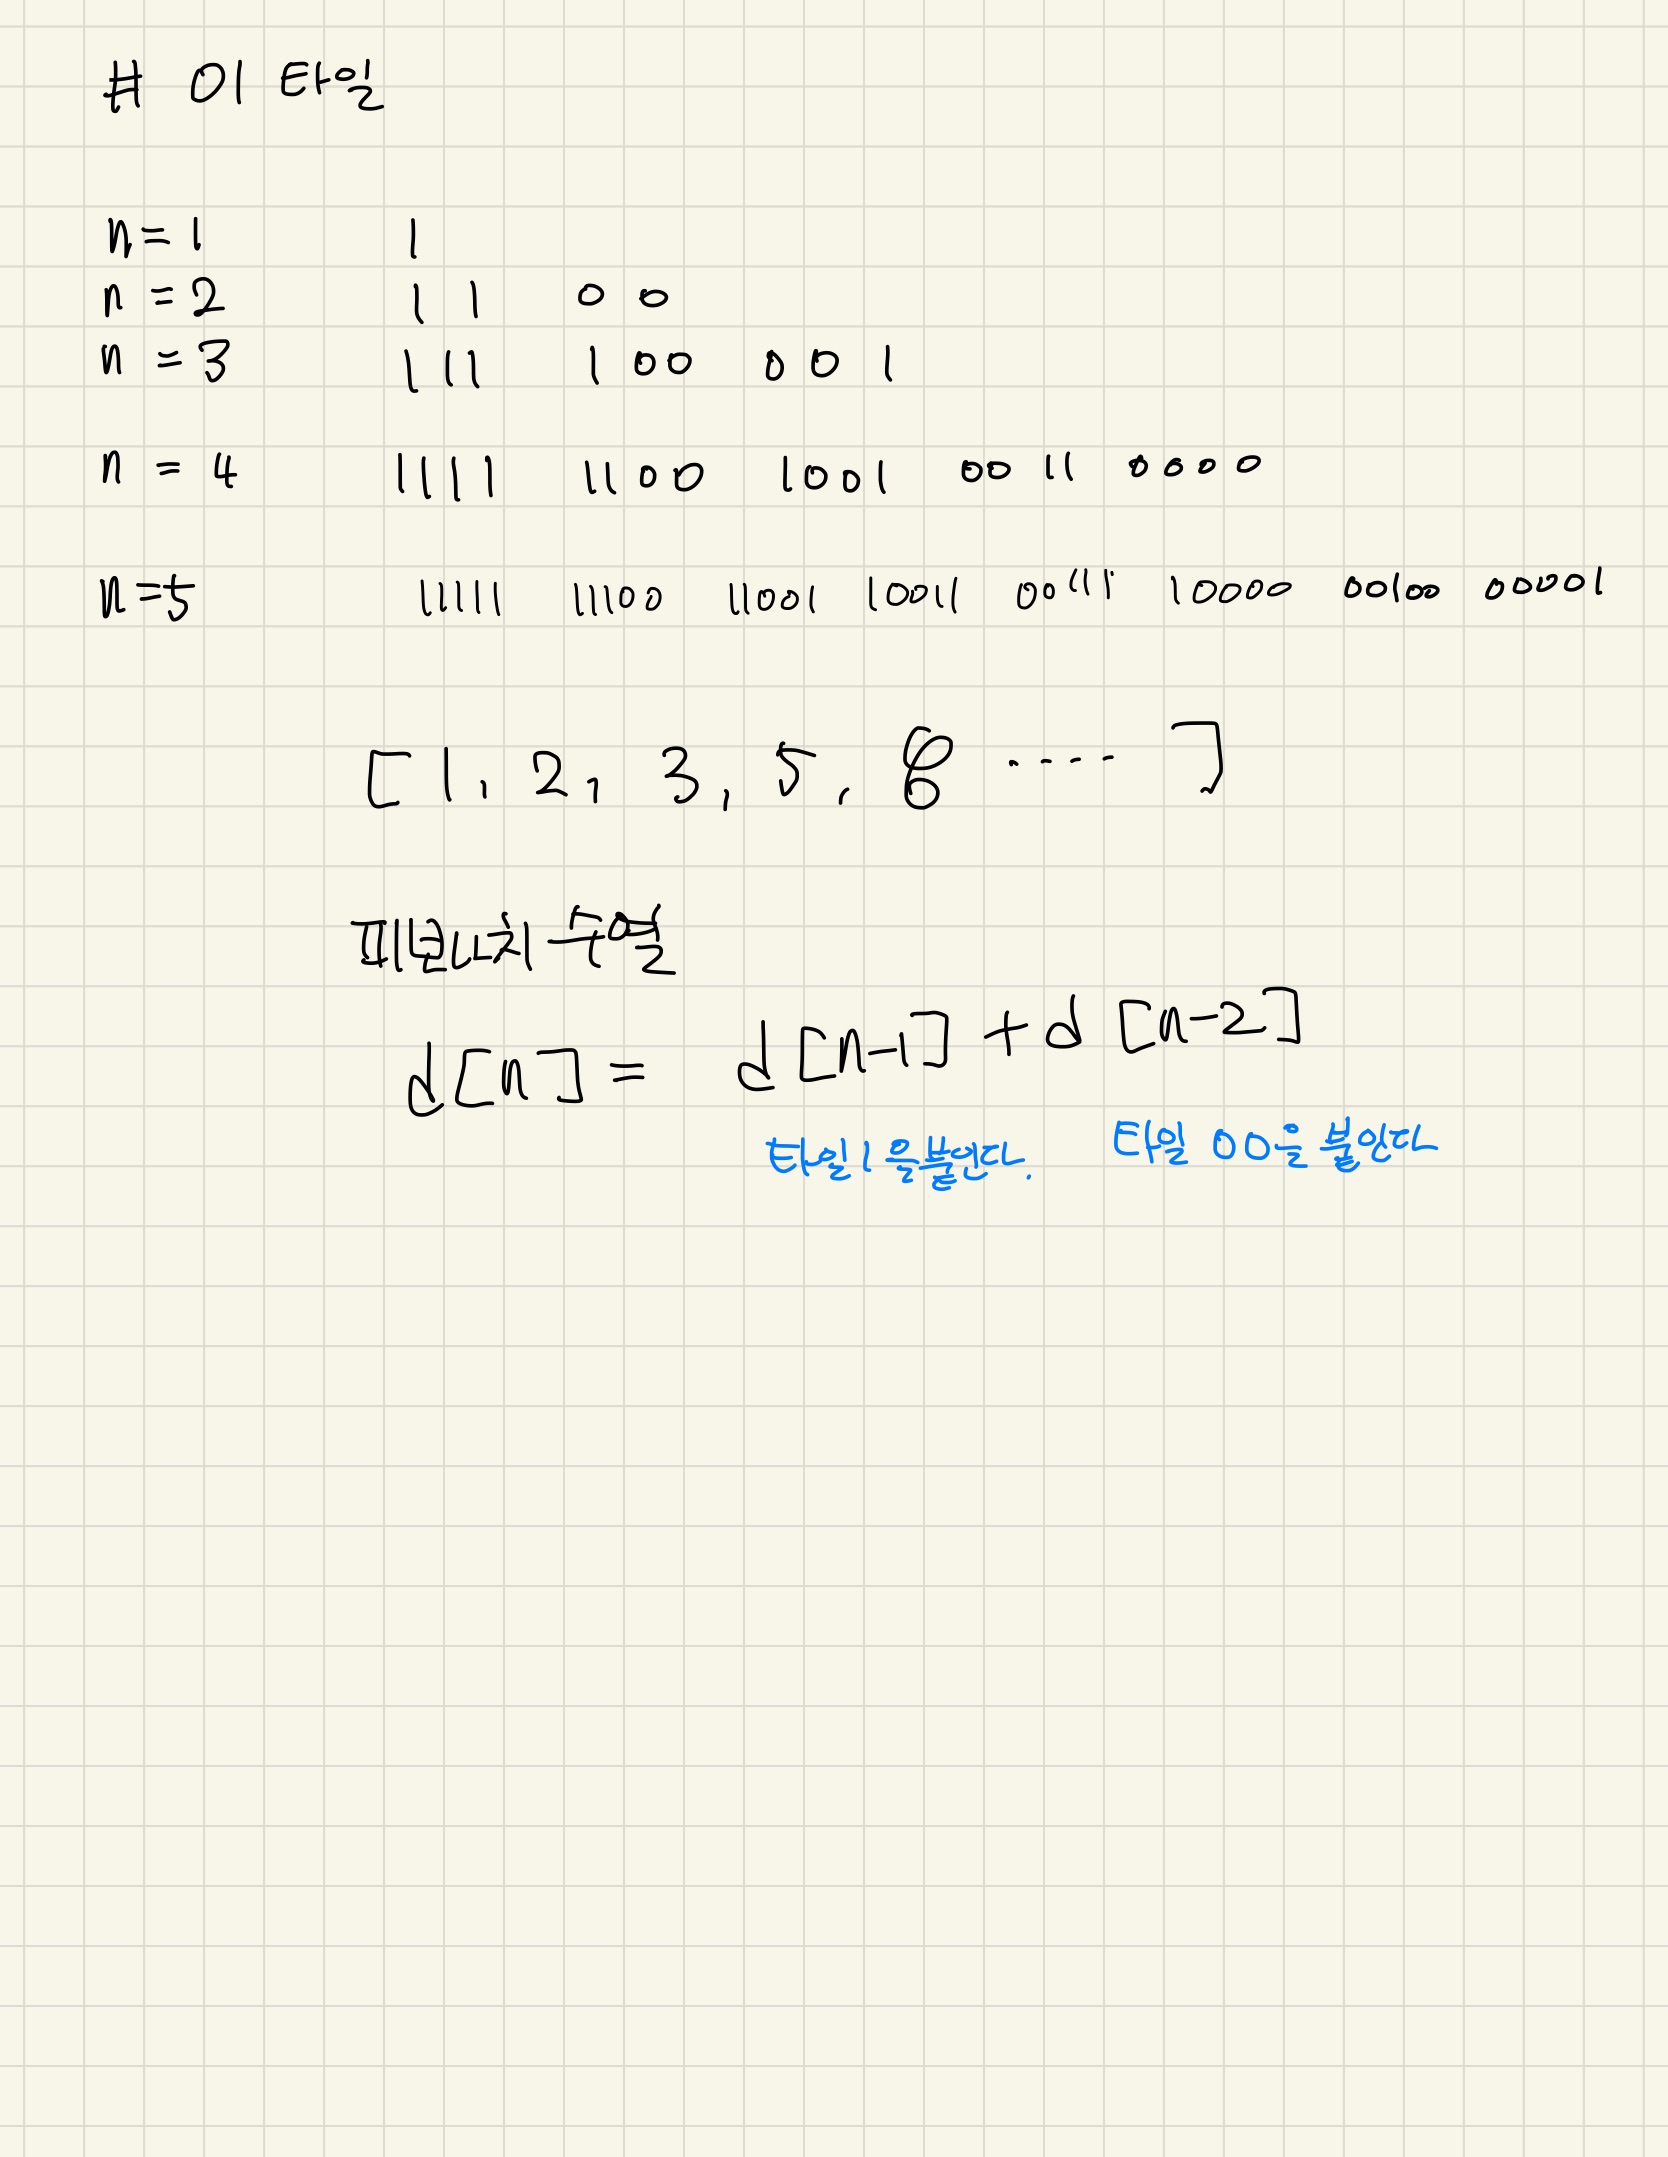 # 01 타일
n=1 1
n=2 11 00
n=3 111 100 001
n=4 1111 1100 1001 0011 0000
n=5 11111 11100 11001 10011 00111 10000 00100 00001
[1, 2, 3, 5, 8 ···· ]
피보나치 수열
d[n] = d[n-1] + d[n-2]
타일 1을 붙인다. 타일 00을 붙인다